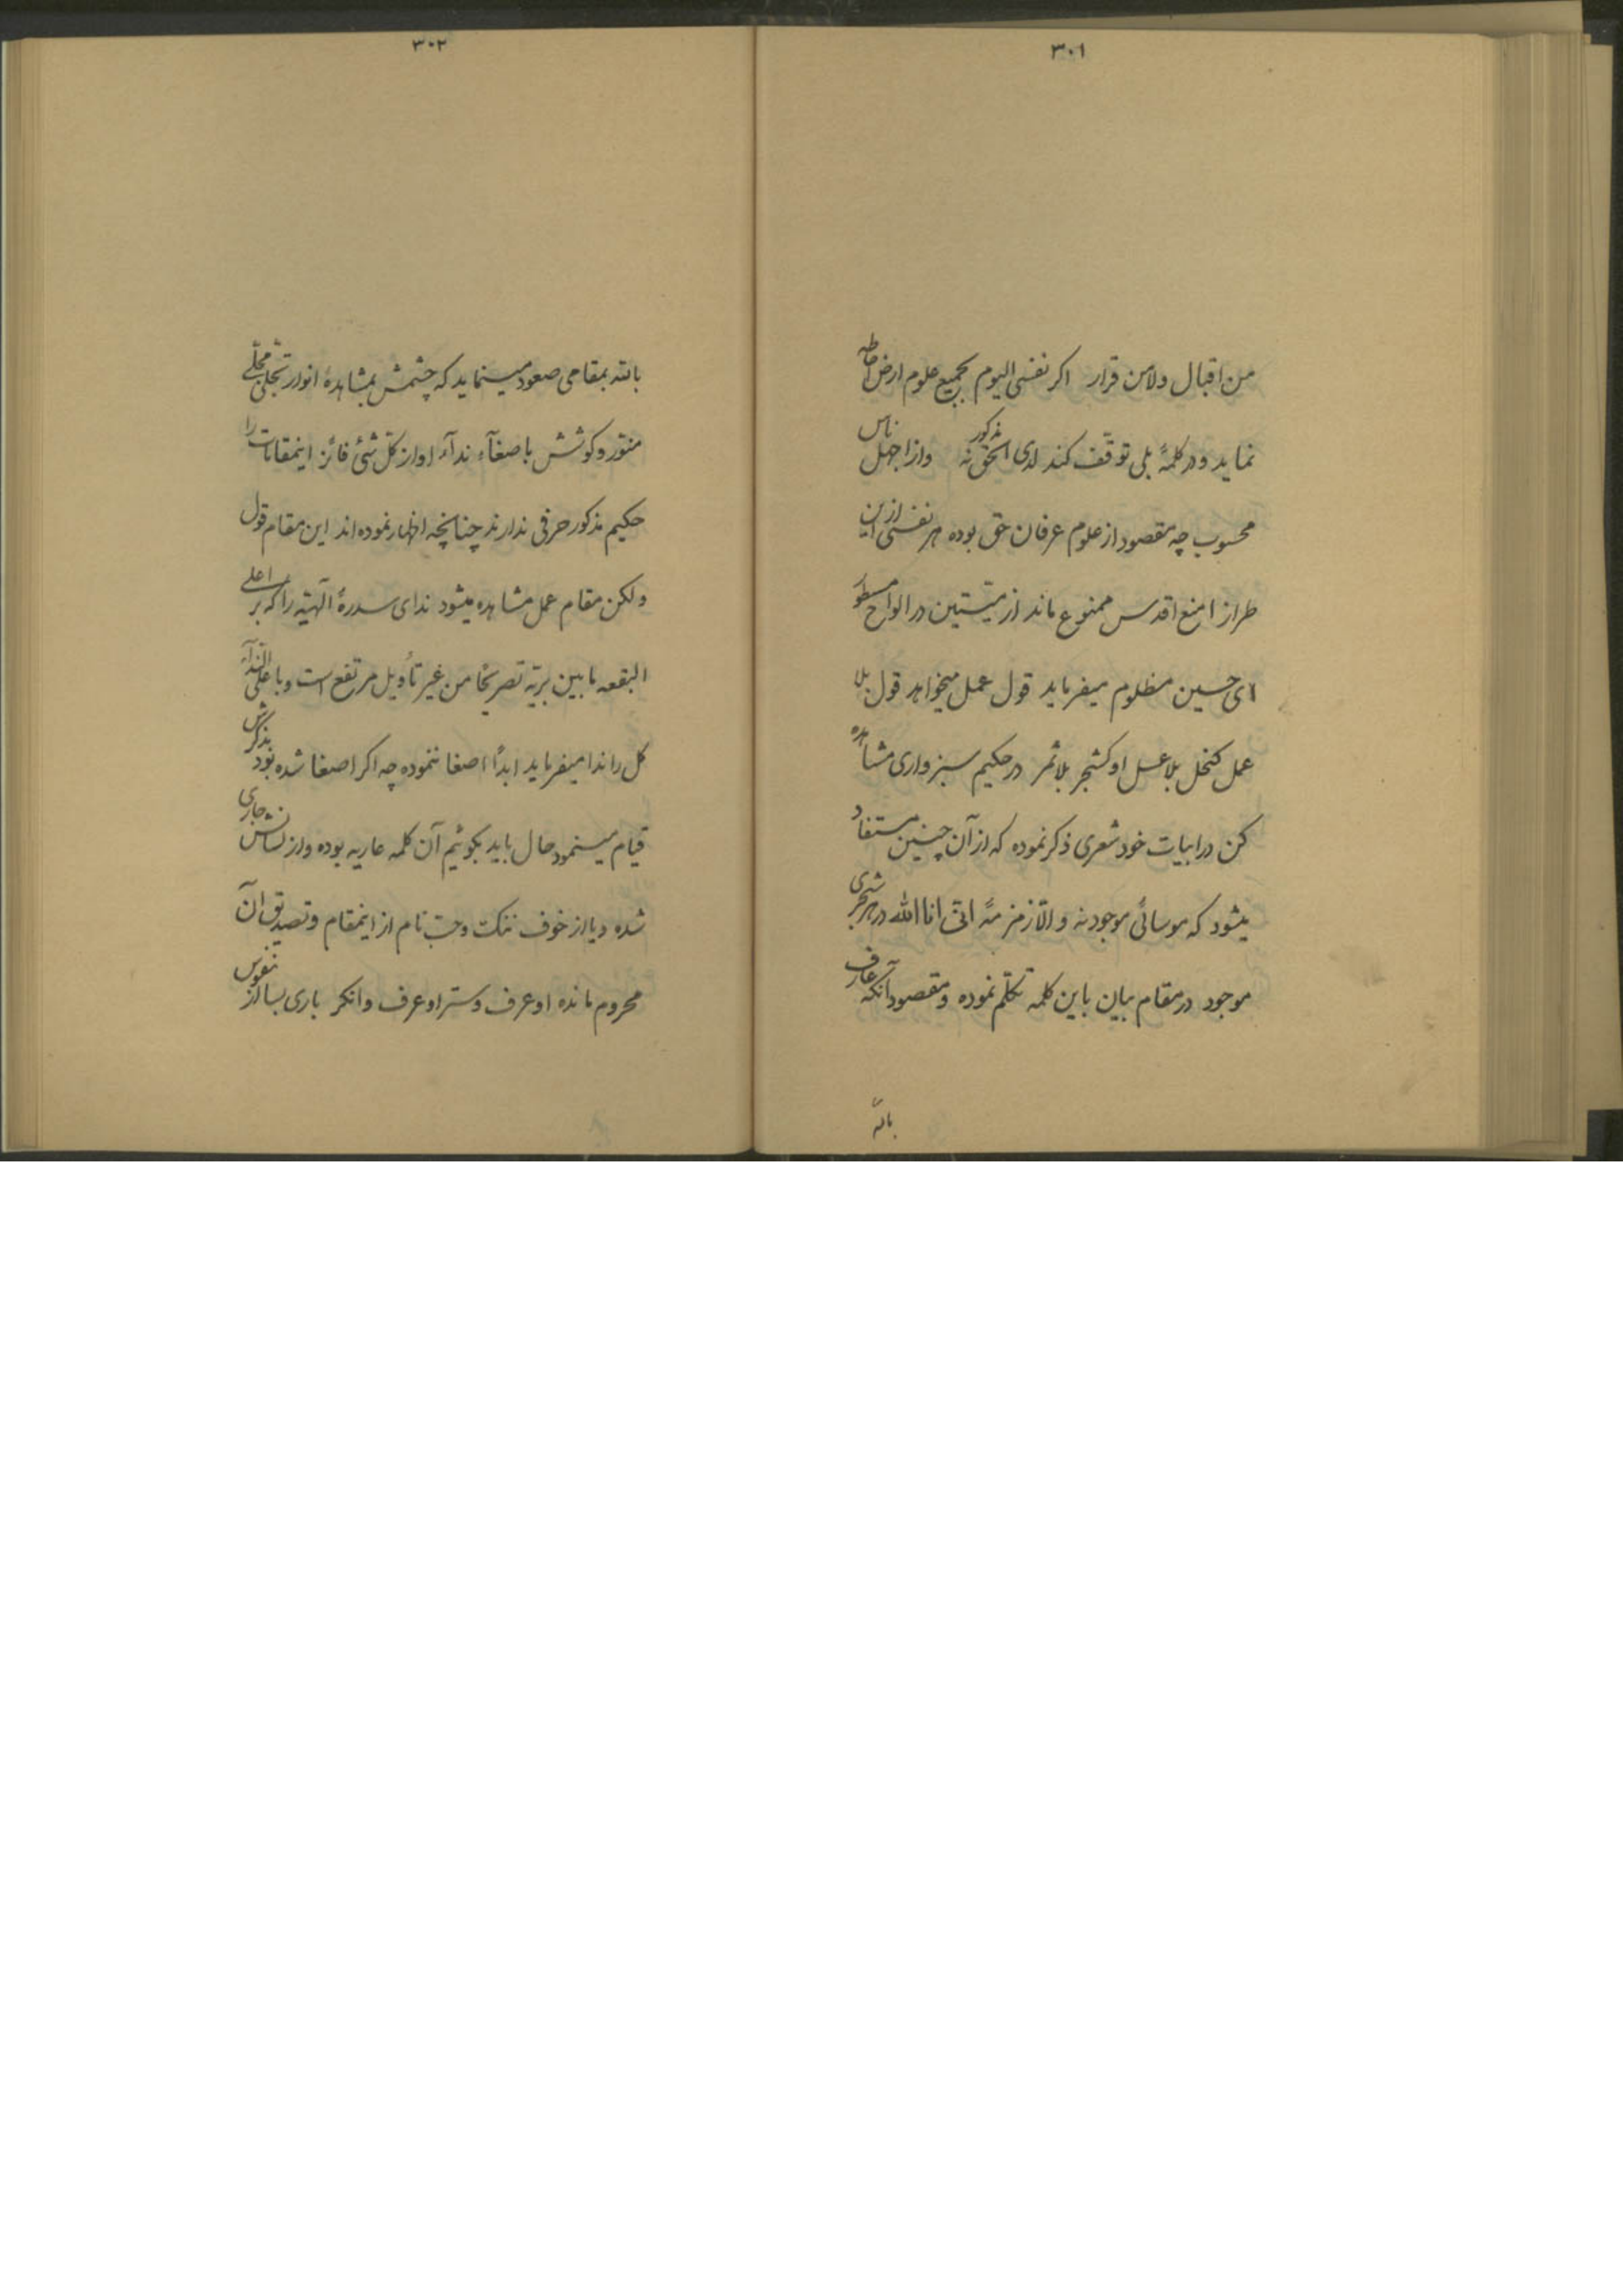 ٣٠١
من اقبال ولامن قرار اکر نفسی الیوم بجمیع علوم ارض احاطه
نماید و در کلمهٔ بلی توقّف کند لدی الحقّ مذکور نه و از اجهل ناس
محسوب چه مقصود از علوم عرفان حق بوده هر نفسی ازین
طراز امنع اقدس ممنوع ماند از میّتین در الواح مسطور
ای حسین مظلوم میفرماید قول عمل میخواهد قول بلا
عمل کنحل بلا عسل او کشجر بلا ثمر در حکیم سبزواری مشاهده
کن در ابیات خود شعری ذکر نموده که از آن چنین مستفاد
میشود که موسائی موجود نه و الّا زمزمهٔ انّی انا الله در هر شجری
موجود در مقام بیان باین کلمه تکلّم نموده و مقصود آنکه عارف
بالله
٣٠٢
بالله بمقامی صعود مینماید که چشمش بمشاهدهٔ انوار تجلّی مجلّی
منوّر و کوشش باصغآء ندآء او از کلّ شئ فائز اینمقامات را
حکیم مذکور حرفی ندارند چنانچه اظهار نموده‌اند این مقام قول
ولکن مقام عمل مشاهده میشود ندای سدرهٔ الهیّه را که بر اعلی
البقعه مابین بریّه تصریحًا من غیر تأویل مرتفع است و باعلی النّدآء
کل را ندا میفرماید ابدًا اصغا ننموده چه اکر اصغا شده بود بذکرش
قیام مینمود حال باید بکوئیم آن کلمه عاریه بوده و از لسانش جاری
شده و یا از خوف ننک و حبّ نام از اینمقام و تصدیق آن
محروم مانده او عرف و ستر او عرف و انکر باری بسا از نفوس